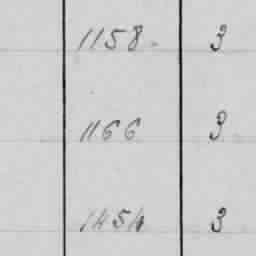 1158 3
1166 3
1454 3